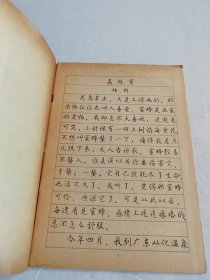 荔枝蜜
杨朔
花鸟草虫,凡是上得画的,那
原物往往也叫人喜爱。蜜蜂是画家
的爱物,我却总不大喜欢。说起来
可笑,小时候有一回上树掐海棠花,
不想叫蜜蜂螫了一下,痛得我差点
儿跌下来。大人告诉我,蜜蜂轻易
不螫人,准是误以为你要伤害它,
才螫。一螫,它自己就耗尽了生命,
也活不久了。我听了,觉得那蜜蜂
可怜,原谅它了。可是从此以后,
每逢看见蜜蜂,感情上疙疙瘩瘩的,
总不怎么舒服。
今年四月,我到广东从化温泉
1